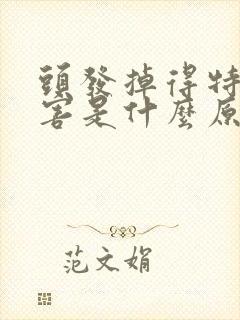 頭發掉得特
害是什麼原
范文娟